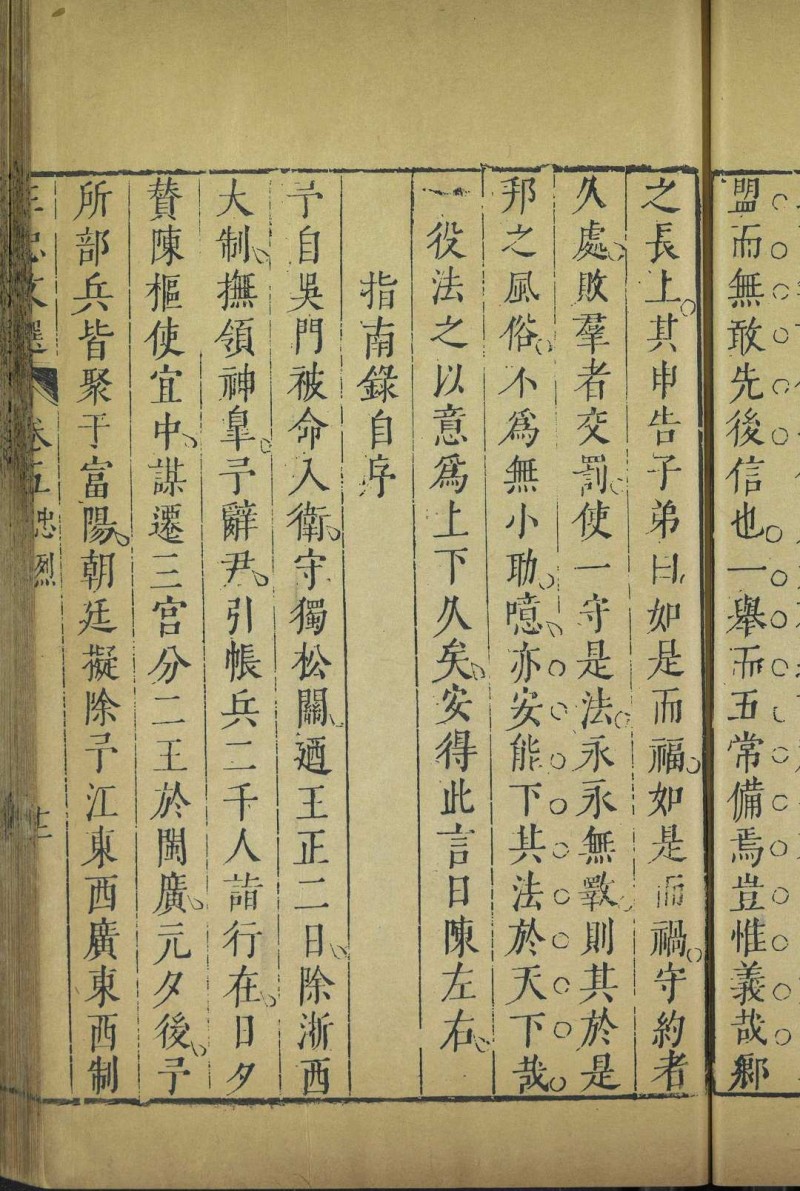 盟而無敢先後信也一舉而五常備焉豈惟義哉鄉
之長上其申告子弟曰如是而福如是而禍守約者
久處敗羣者交罰使一守是法永永無斁則其於是
邦之風俗不為無小助噫亦安能下其法於天下哉
一役法之以意為上下久矣安得此言日陳左右
指南錄自序
予自吳門被命入衛守獨松關迺王正二日除浙西
大制撫領神皐予辭尹引帳兵二千人詣行在日夕
贊陳樞使宜中謀遷三宮分二王於閩廣元夕後予
所部兵皆聚于富陽朝廷擬除予江東西廣東西制
忠文選 卷五 忠烈